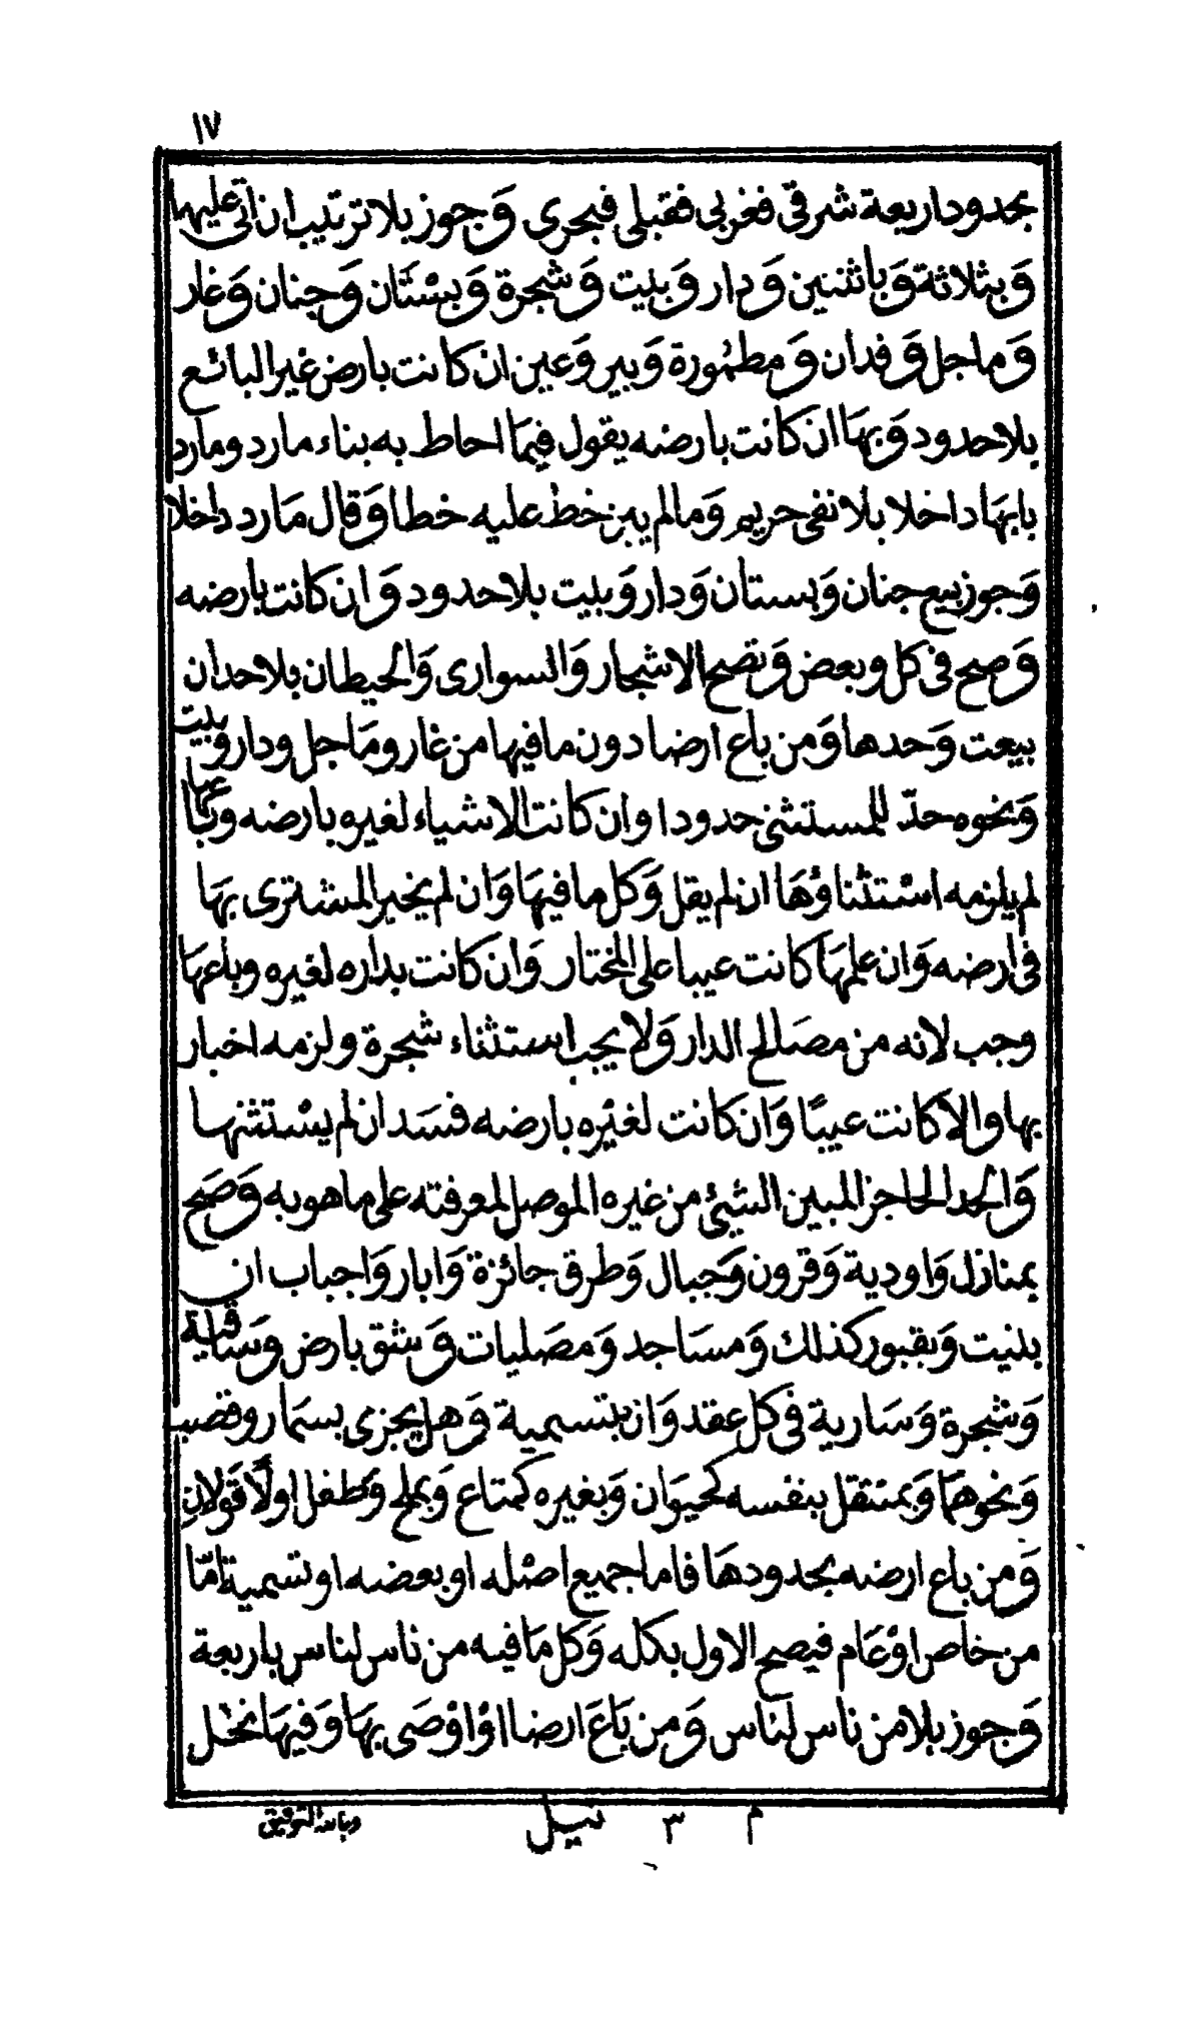 ١٧
بحدود اربعة شرقى فغربى فقبلى فبحرى وَجوز بلا ترتيب ان اتى عليها
وَبثلاثة وَباثنين وَدار وَبيت وَشجرة وَبسْتَان وَجنان وَغار
وَماجل وَفدان وَمطمُورة وَبير وَعين ان كانت بارض غير البائع
بلا حدود وَبهَا ان كانت بارضه يقول فيمَا احاط به بناء مارد ومارد
بابهَا داخلا بلا نفى حريم وَما لم يبن خط عليه خطا وَقال مَارد داخلا
وَجوز بيع جنان وَبستان وَدار وَبيت بلا حدود وَان كانت بارضه
وَصح فى كل وبعض وَتصح الاشجار وَالسوارى وَالحيطان بلا حد ان
بيعت وَحدها وَمن باع ارضا دون ما فيها من غار ومَاجل ودار وبيت
وَنحوه حدّ للمستثنى حدودا وان كانت الاشياء لغيره بارضه وَباعها
لم يلزمه اسْتثناؤهَا ان لم يقل وَكل ما فيهَا وَان لم يخبر المشترى بهَا
فى ارضه وَان علمهَا كانت عيبا على المختار وَان كانت بداره لغيره وباعهَا
وجب لانه من مصَالح الدار وَلا يجب استثناء شجرة ولزمه اخبار
بها والا كانت عيبًا وَان كانت لغيْره بارضه فسَد ان لم يسْتثنها
وَالحد الحاجز المبين الشئ من غيره الموصل لمعرفته على ما هو به وَصَح
بمنازل وَاودية وَقرون وَجبال وَطرق جائزة وَابار وَاجباب ان
بنيت وَبقبور كذلك وَمسَاجد وَمصَليات وَشق بارض وَسَاقية
وَشجرة وَسَارية فى كل عقد وَان بتسمية وَهل يجزى بسمَار وقصب
وَنحوهمَا وَبمتنقل بنفسه كحيوَان وَبغيره كمتاع وَبملح وَطفل اولًا قَولانِ
وَمن باع ارضه بحدودهَا فاما جميع اصْله او بعضه او تسمية امّا
من خاص اوْ عَام فيصح الاول بكله وَكل مَا فيه من ناس لناس باربعة
وَجوز بلا من ناس لناس وَمن بَاعَ ارضا اوْ اوْصَى بهَا وَفيهَا نخل
م ٣ نيل وبالله التوفيق